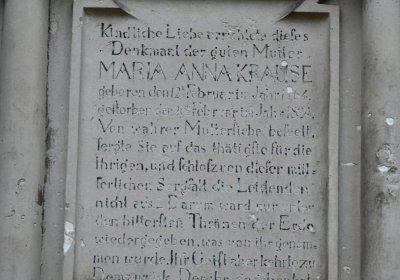 Kindliche Liebe errichtete dieses
Denkmal der guten Mutter
MARIA ANNA KRAUSE
geboren den 12 Februar im Jahr
gestorben den Februar im Jahr
Von wahrer Mutterliebe beseelt,
sorgte Sie auf das thätigste für die
Ihrigen, und schloss von dieser müt-
terlichen Sorgfalt die Leidenden
nicht aus. Darum ward nur unter
den bittersten Thränen der Erde
wiedergegeben, was von ihr genom-
men wurde, Ihr Geist aber kehrte zu